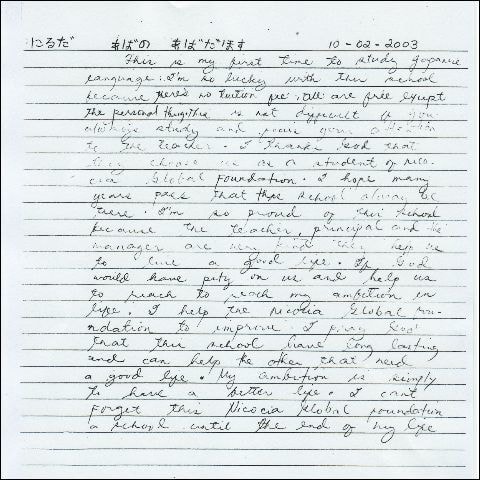 にるだ あばの あばだほす 10-02-2003
This is my first time to study Japanese
language. I'm so lucky with this school
because there's no tuition fee, all are free except
the personal things. this is not difficult if you
always study and focus your attention
to the teacher. I thanks God that
they choose us as a student of nico-
cia Global Foundation. I hope many
years pass that this school always be
there. I'm so proud of this school
because the teacher, principal and the
manager are very kind they help me
to live a good life. If God
would have pity on us and help us
to reach to reach my ambition in
life. I help the nicocia Global fou-
ndation to improve. I pray God
that this school have long lasting
and can help the other that need
a good life. My ambition is simply
to have a better life. I can't
forget this Nicocia Global foundation
a school until the end of my life